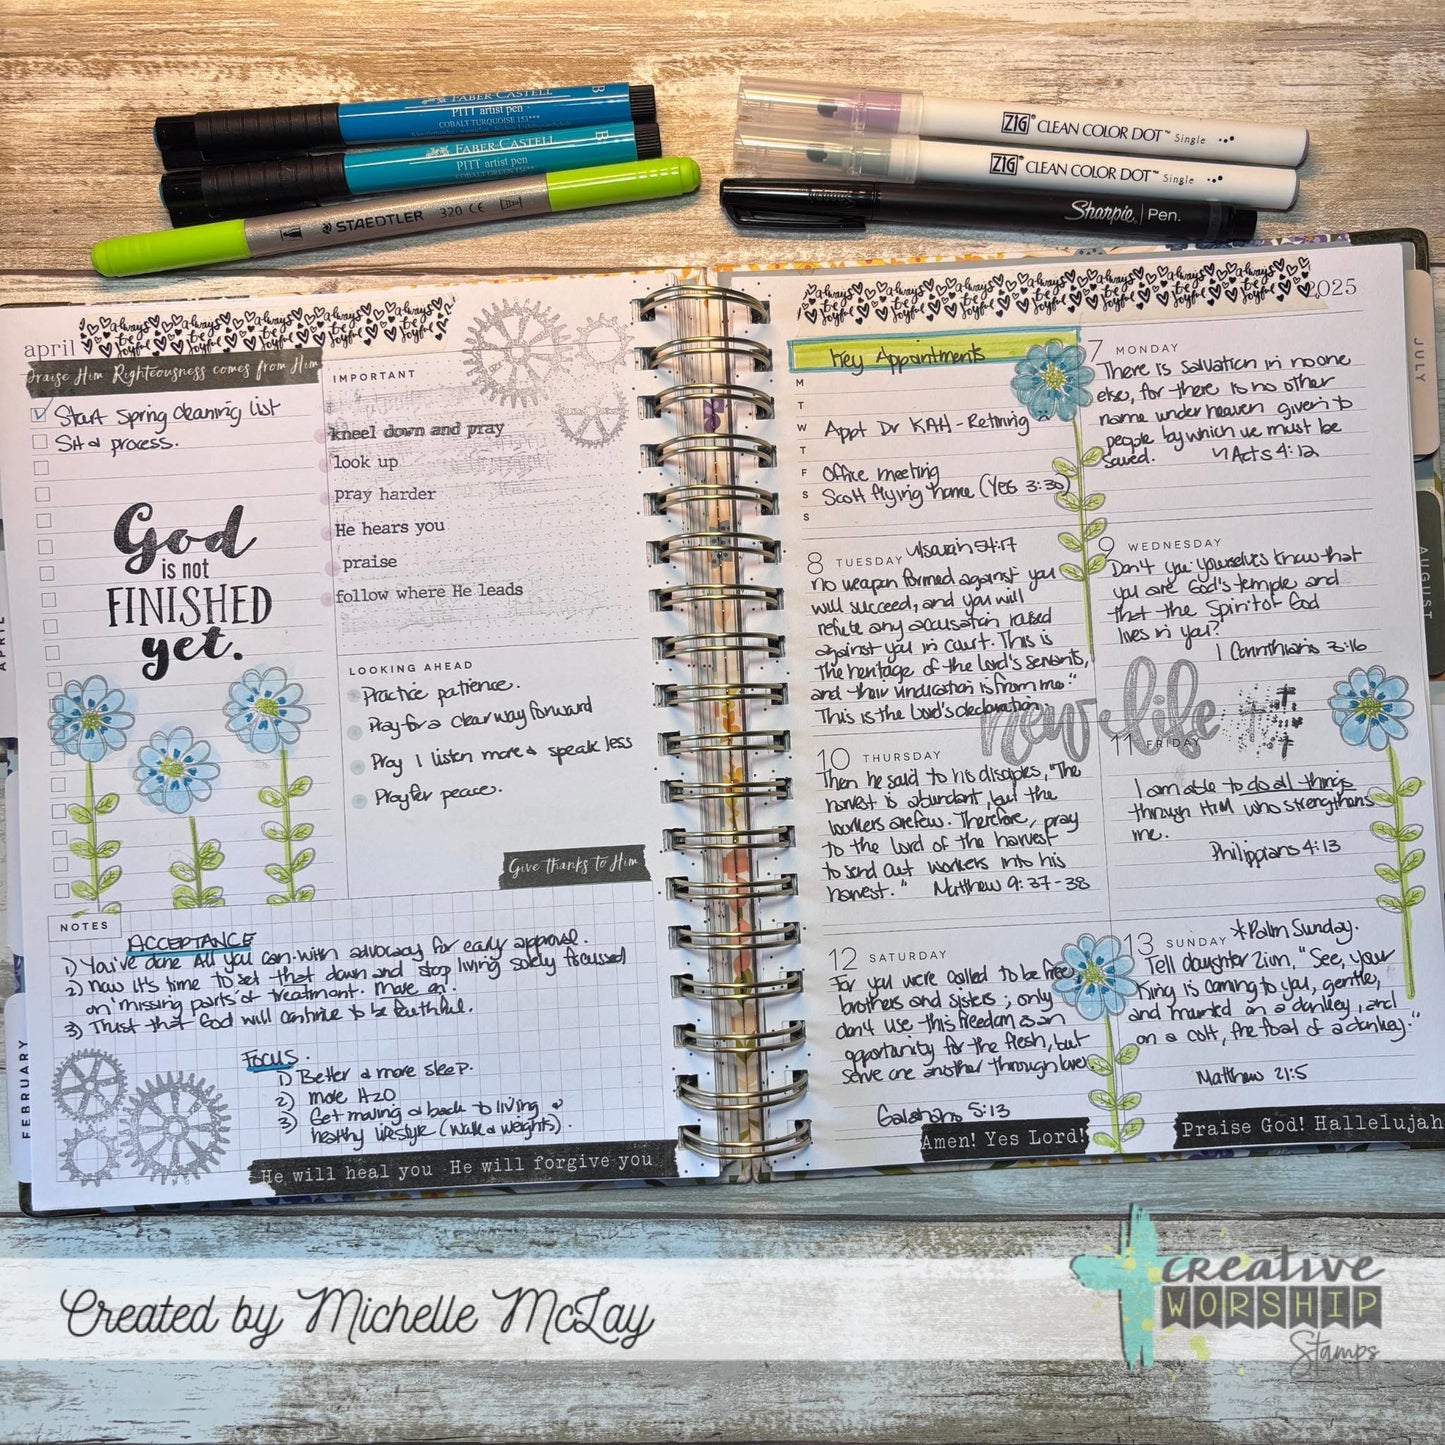 FABER CASTELL
PITT artist pen
COBALT TURQUOISE 153***
B
FABER CASTELL
PITT artist pen
COBALT GREEN 156**
B
STAEDTLER 320 CE
ZIG CLEAN COLOR DOT™ Single
ZIG CLEAN COLOR DOT™ Single
Sharpie | Pen.
april
always be joyful always be joyful always be joyful always be joyful always be joyful
Praise Him Righteousness comes from Him
Start Spring cleaning list
SH & process.
God
is not
FINISHED
yet.
IMPORTANT
kneel down and pray
look up
pray harder
He hears you
praise
follow where He leads
LOOKING AHEAD
Practice patience.
Pray for a clear way forward
Pray I listen more & speak less
Pray for peace.
Give thanks to Him
NOTES
ACCEPTANCE
1) You've done All you can with advocacy for early approval.
2) Now it's time to set that down and stop living solely focussed
on "missing parts" of treatment. Move on.
3) Trust that God will continue to be faithful.
FOCUS.
1) Better & more sleep.
2) more H2O
3) Get moving & back to living
healthy lifestyle (walk & weights).
He will heal you He will forgive you
always be joyful always be joyful always be joyful always be joyful always be joyful
2025
Key Appointments
M
T
W Appt Dr KAH - Retiring
T
F Office meeting
S Scott flying home (YEG 3:30)
S
7 MONDAY
There is salvation in no one
else, for there is no other
name under heaven given to
people by which we must be
saved. Acts 4:12
8 TUESDAY Isaiah 54:17
no weapon formed against you
will succeed, and you will
refute any accusation raised
against you in court. This is
the heritage of the Lord's servants,
and their vindication is from me."
This is the Lord's declaration.
9 WEDNESDAY
Don't you yourselves know that
you are God's temple and
that the Spirit of God
lives in you?
1 Corinthians 3:16
new life
10 THURSDAY
Then he said to his disciples, "The
harvest is abundant, but the
workers are few. Therefore, pray
to the Lord of the harvest
to send out workers into his
harvest." Matthew 9:37-38
11 FRIDAY
I am able to do all things
through HIM who strengthens
me.
Philippians 4:13
12 SATURDAY
For you were called to be free,
brothers and sisters; only
don't use this freedom as an
opportunity for the flesh, but
serve one another through love.
Galatians 5:13
Amen! Yes Lord!
13 SUNDAY *Palm Sunday.
Tell daughter Zion, "See, your
King is coming to you, gentle,
and mounted on a donkey, and
on a colt, the foal of a donkey."
Matthew 21:5
Praise God! Hallelujah
APRIL
FEBRUARY
JULY
AUGUST
Created by Michelle McLay
creative
WORSHIP
Stamps